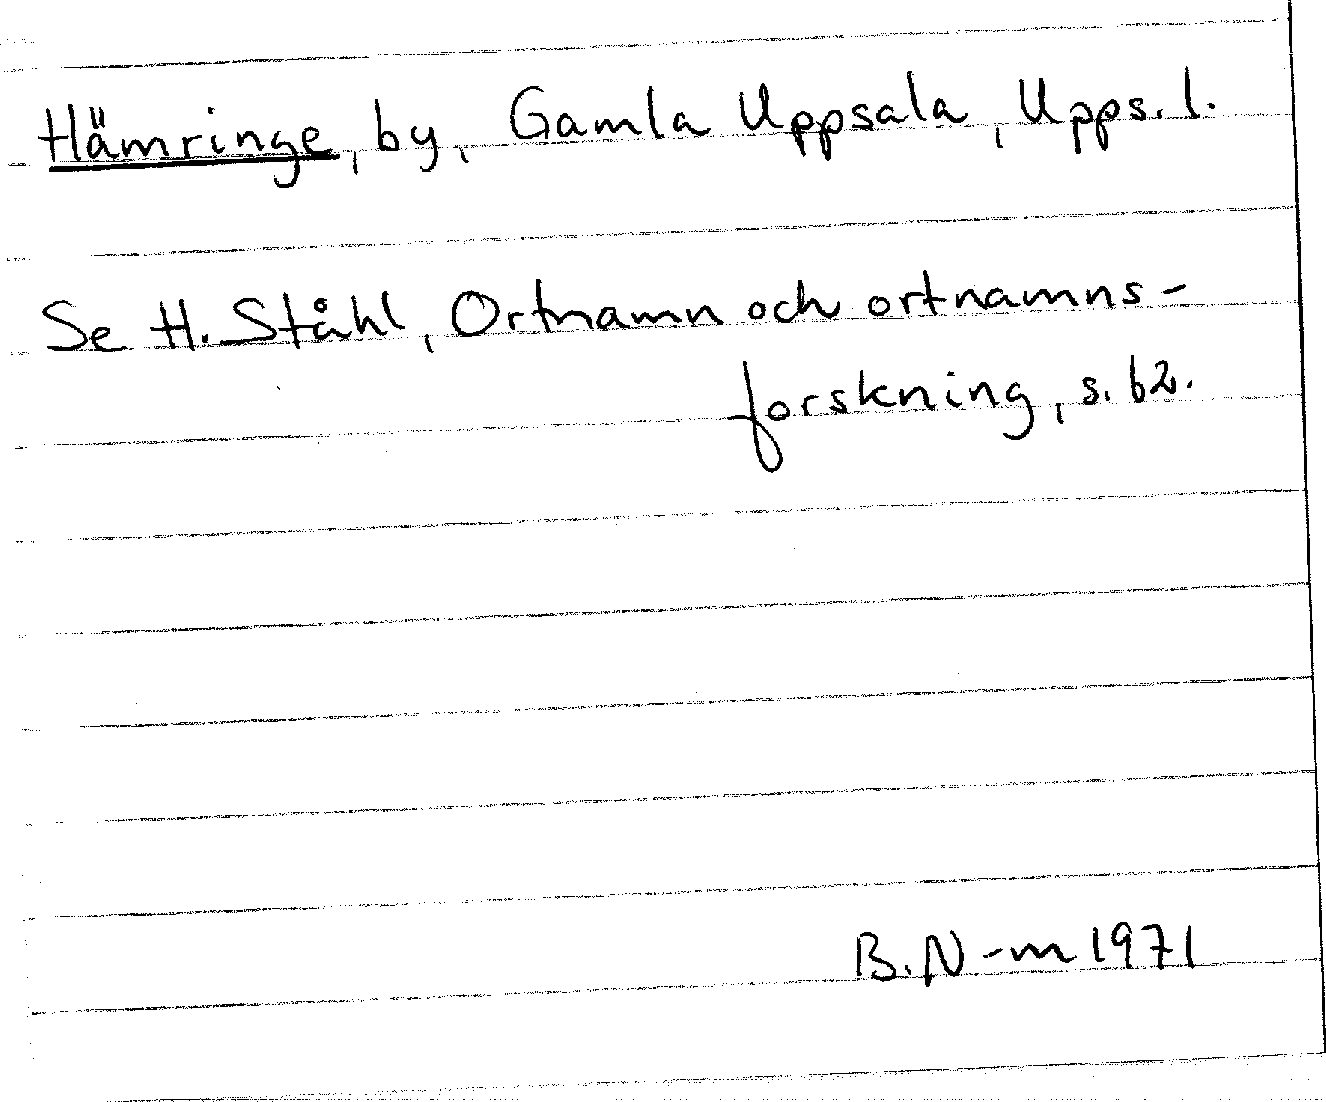 Hämringe, by, Gamla Uppsala, Upps. l.
Se H. Ståhl, Ortnamn och ortnamns-
forskning, s. 62.
B. N-m 1971